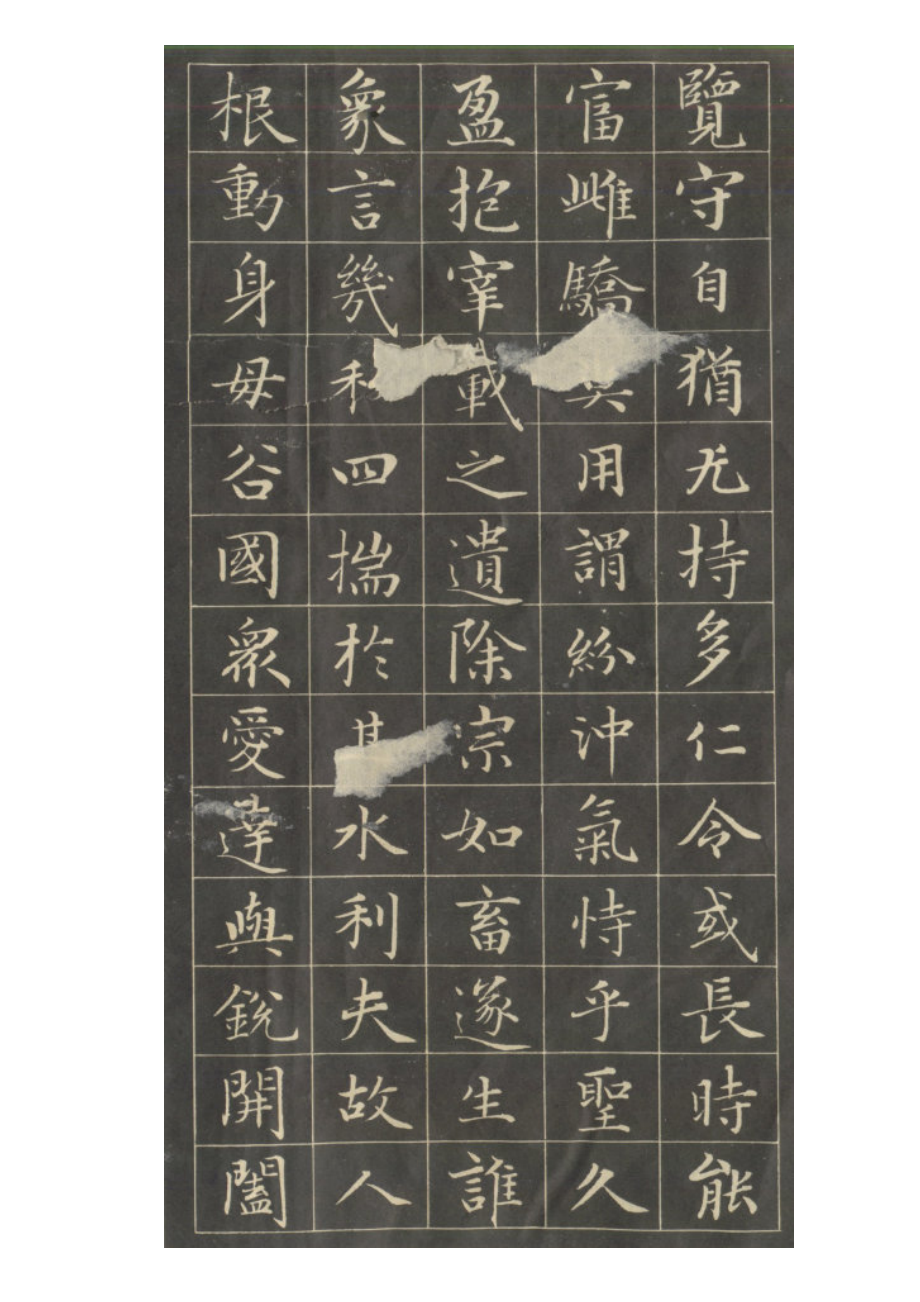 覽守自猶尤持多仁令或長時能
富雌驕用謂紛沖氣恃乎聖久
盈抱宰載之遺除宗如畜遂生誰
象言幾四揣於水利夫故人
根動身毋谷國眾愛達與銳開闔